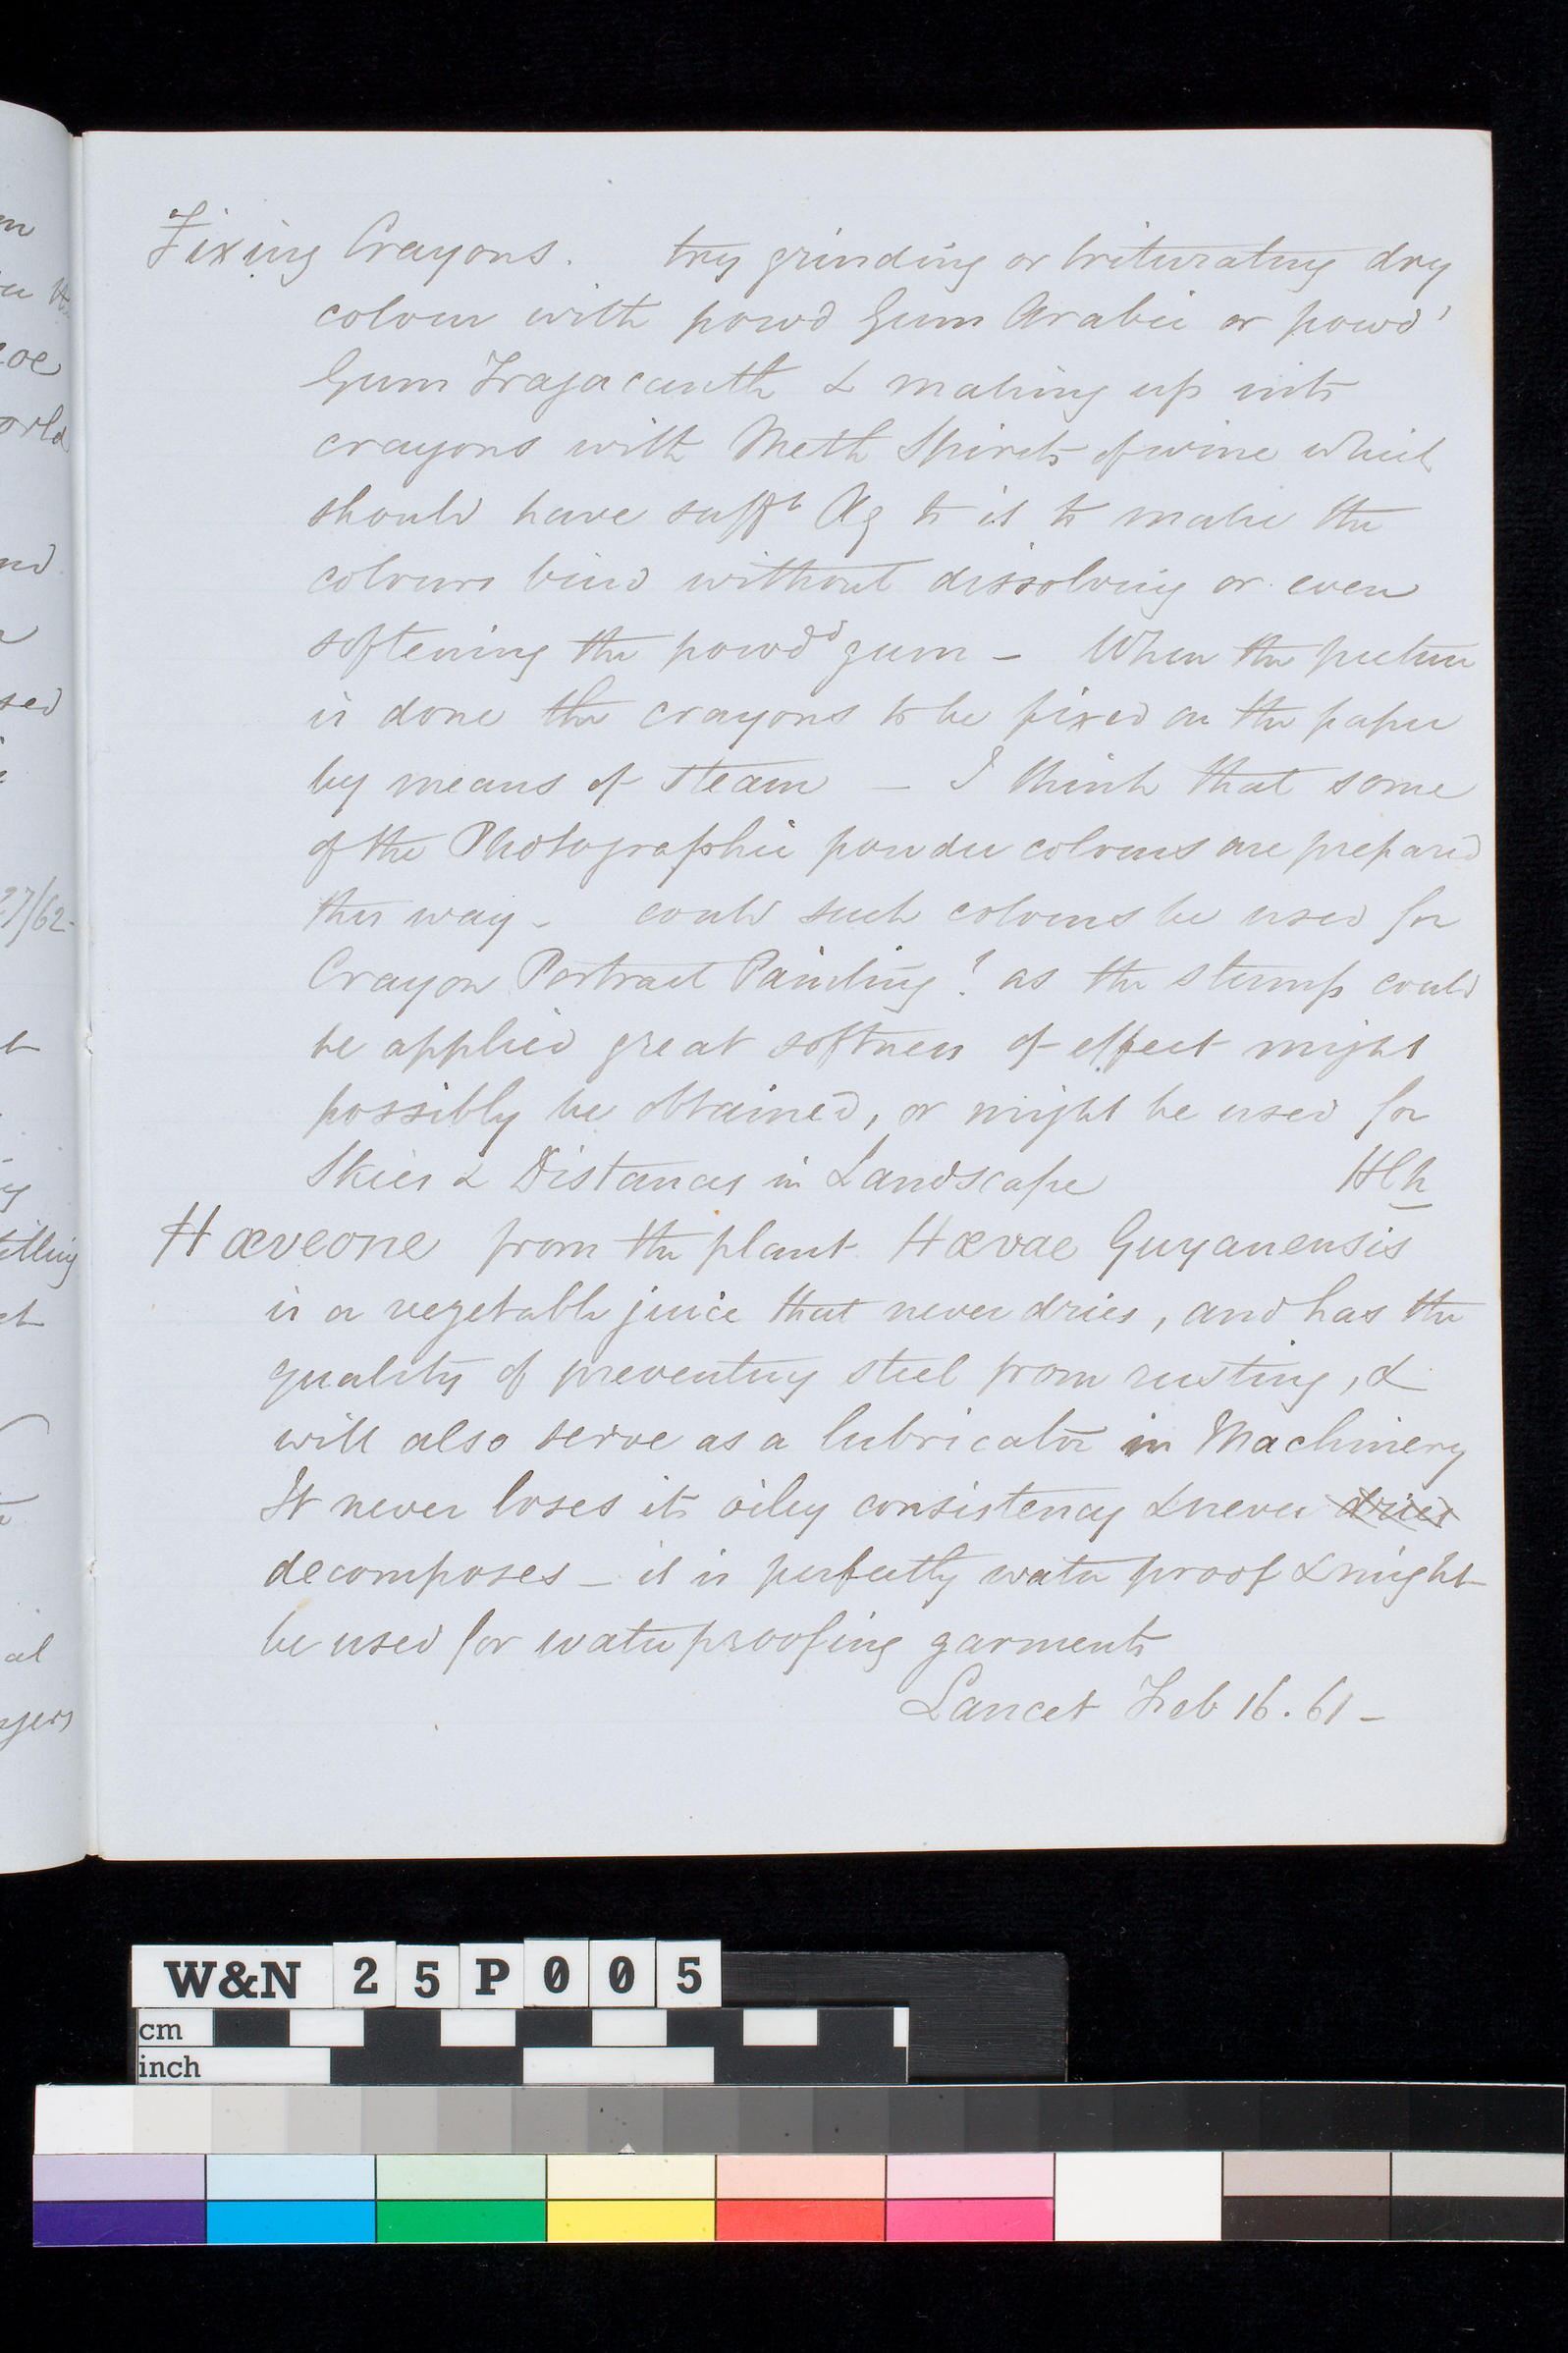 Fixing Crayons. try grinding or triturating dry
colour with powd Gum Arabic or powd'
Gum Tragacanth & making up into
crayons with Meth Spirits of wine which
should have suff^t Aq to it to make the
colours bind without dissolving or even
softening the powd^d gum - When the picture
is done the crayons to be fixed on the paper
by means of steam - I think that some
of the Photographic powder colours are prepared
this way - could such colours be used for
Crayon Portrait Painting? as the stump could
be applied great softness of effect might
possibly be obtained, or might be used for
Skies & Distances in Landscape
Hæveone from the plant Hævae Guyanensis
is a vegetable juice that never dries, and has the
quality of preventing steel from rusting, &
will also serve as a lubricator in Machinery
It never loses its oiley consistency & never dries
decomposes - it is perfectly water proof & might
be used for waterproofing garments
Lancet Feb 16. 61 -
27/62-
W&N 25P005
cm
inch